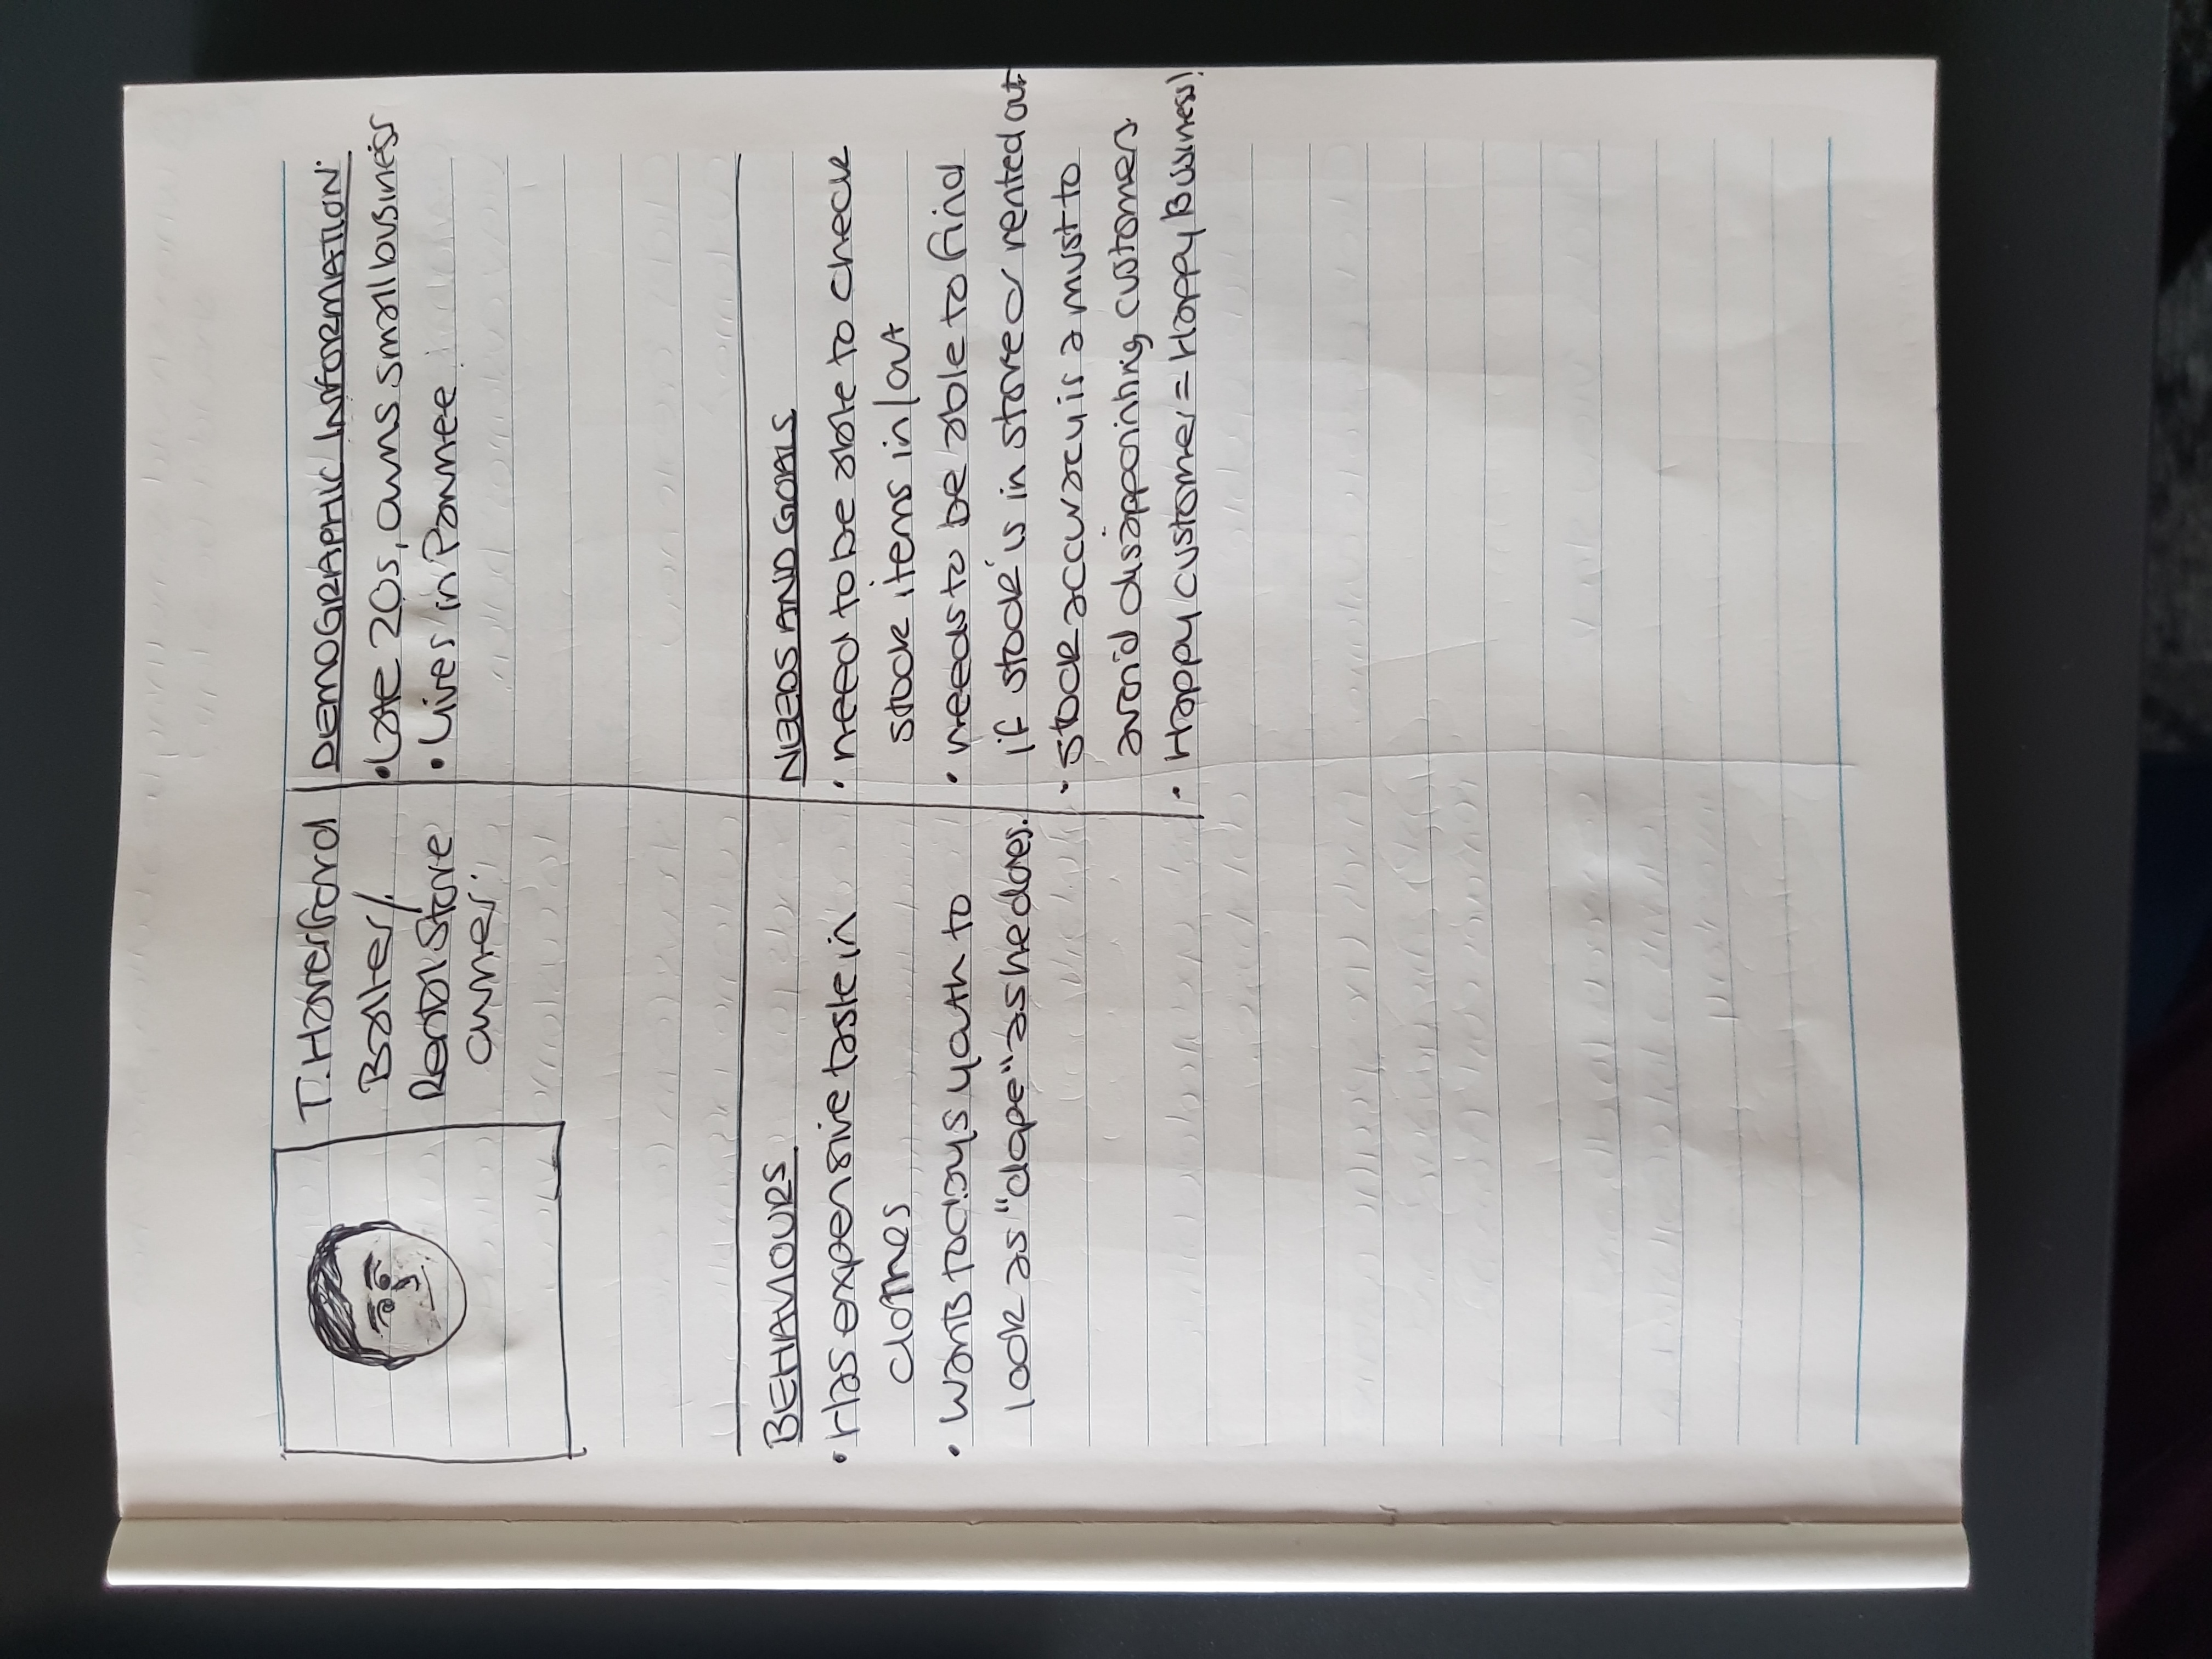 T. Haverford
Baller/
Rental Store
owner.
DEMOGRAPHIC INFORMATION
• Late 20s, owns small business
• Lives in Pawnee
BEHAVIOURS
• Has expensive taste in
clothes
• Wants todays youth to
look as "dope" as he does.
NEEDS AND GOALS
• need to be able to check
stock items in/out
• needs to be able to find
if stock is in store or rented out
• stock accuracy is a must to
avoid disappointing customers.
• Happy customer = Happy Business!